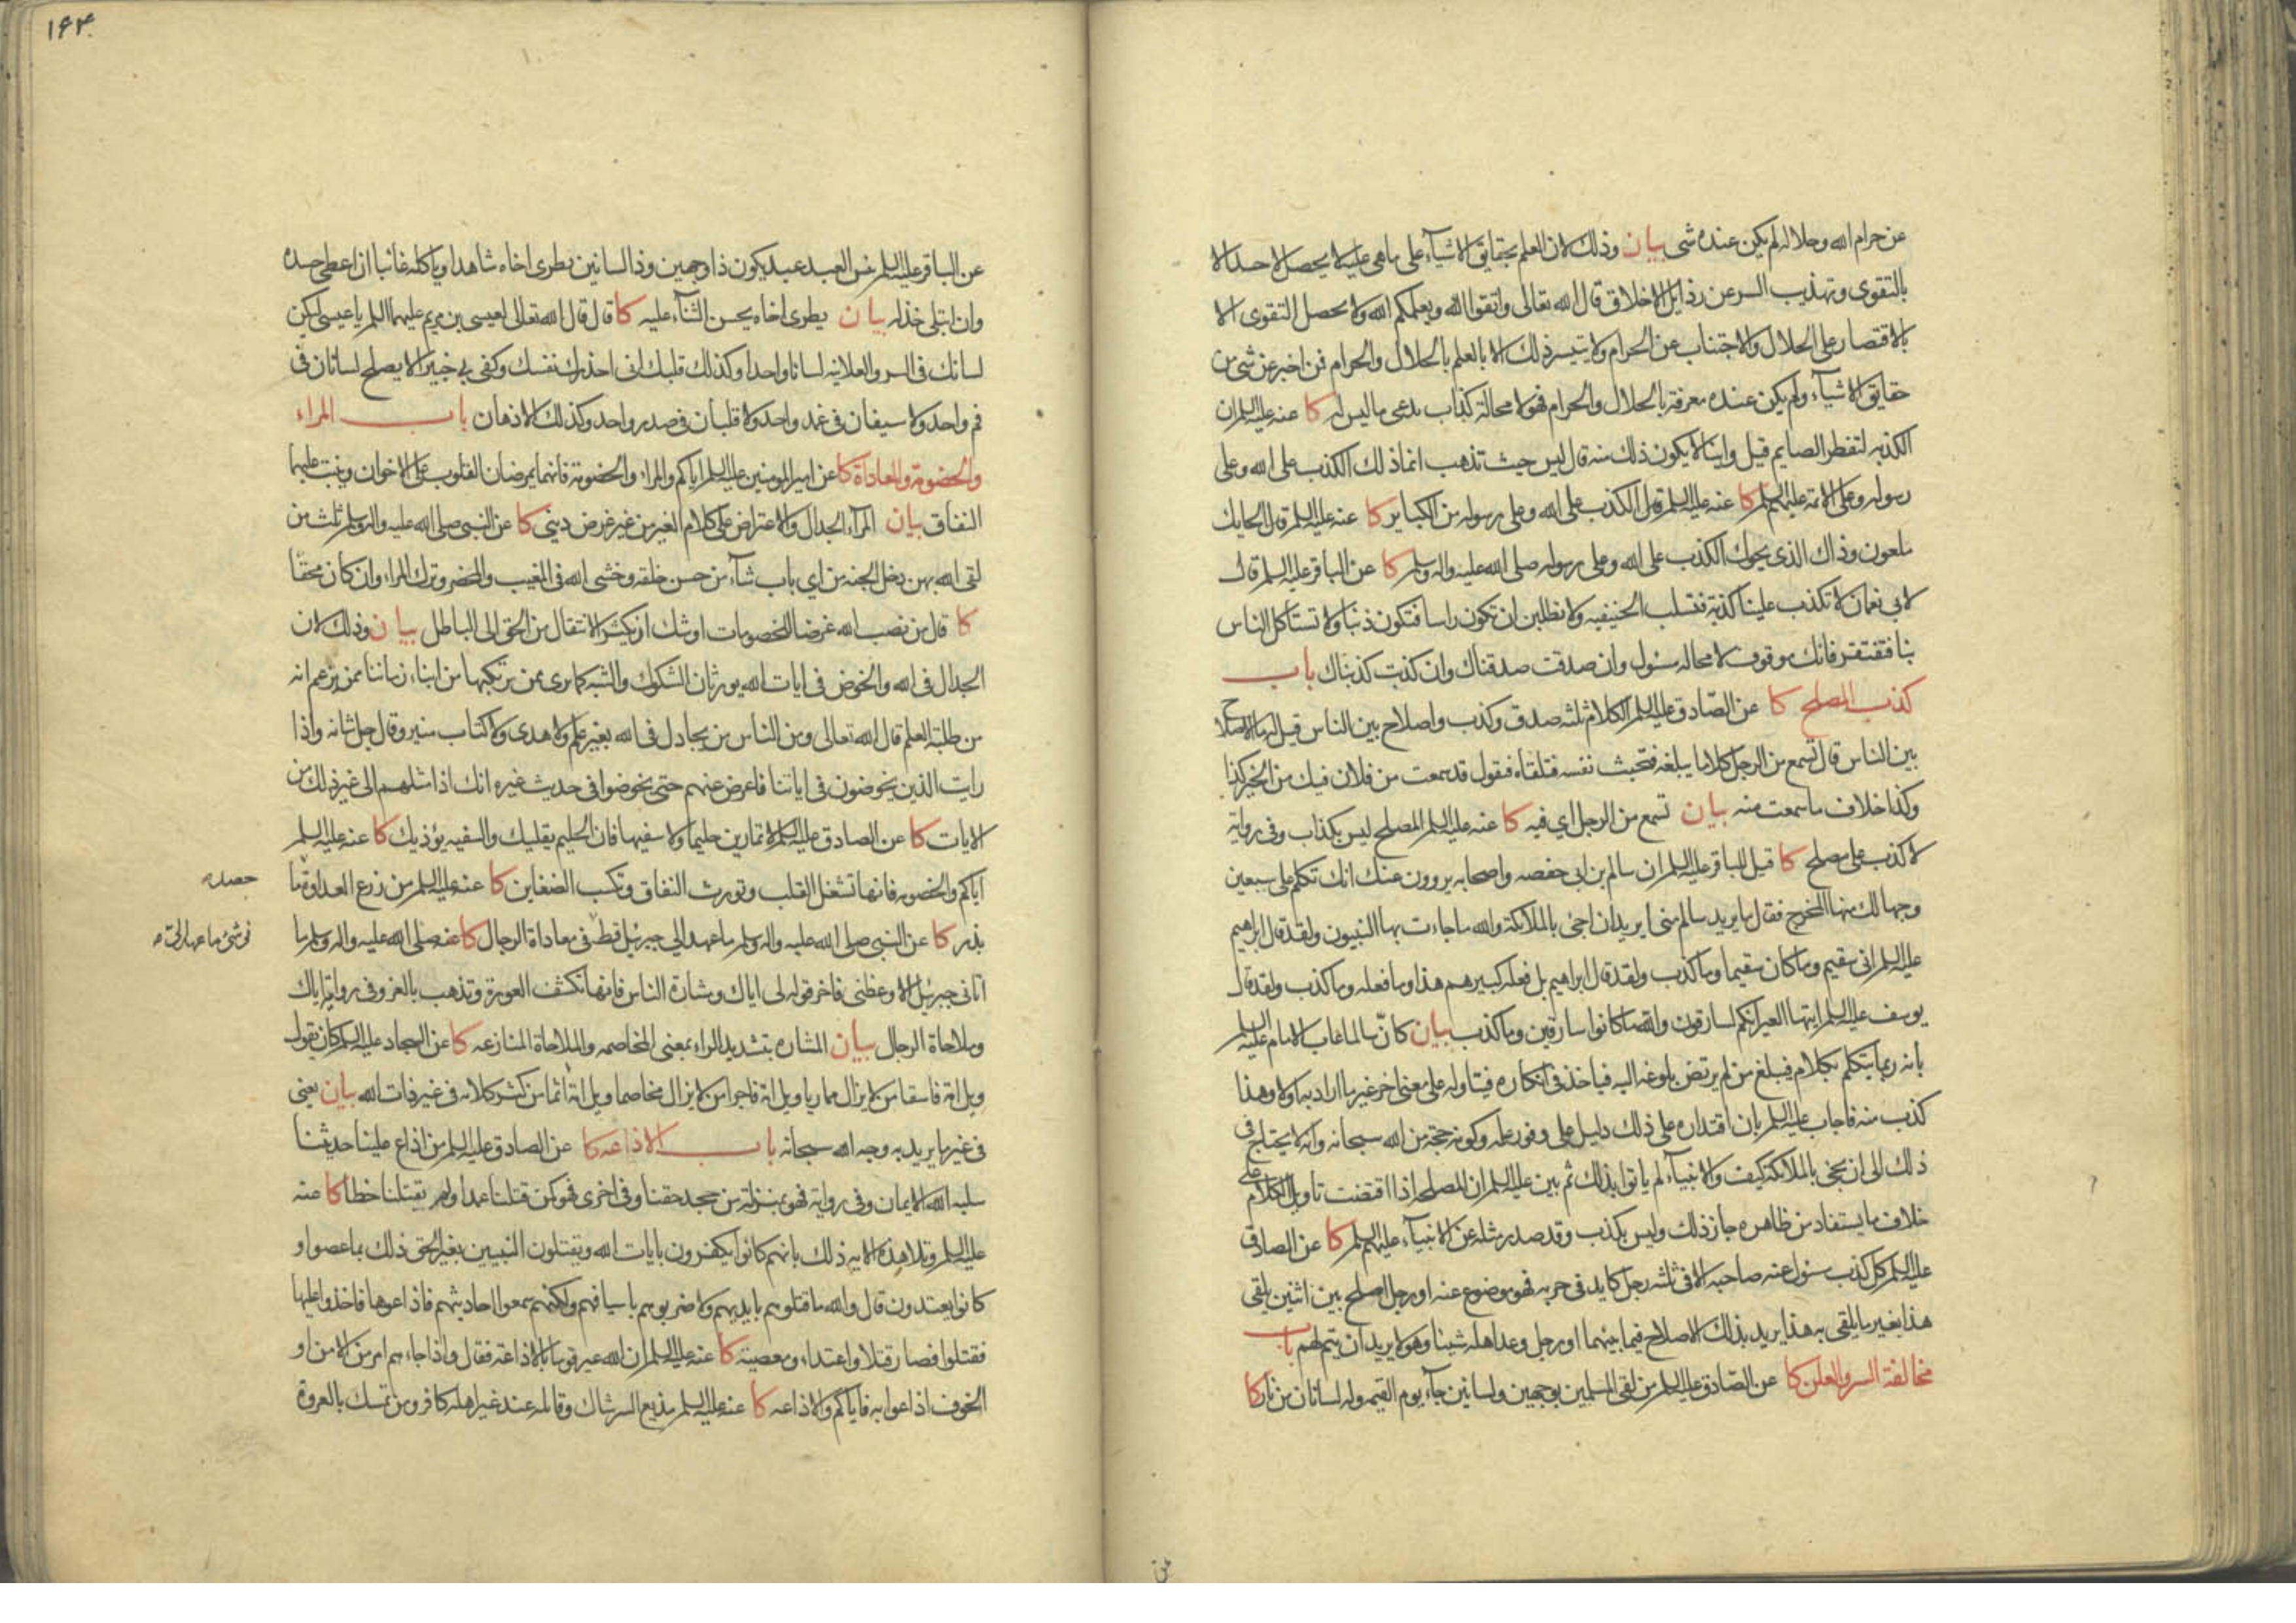 عن حرام الله وحلاله لم يكن عنده شى بيان وذلك لان العلم بحقايق الاشيآء على ماهى عليه لا يحصل لاحد الا
بالتقوى وتهذيب السر عن رذايل الاخلاق قال الله تعالى واتقوا الله ويعلمكم الله ولا يحصل التقوى الا
بالاقتصار على الحلال والاجتناب عن الحرام ولا يتيسر ذلك الا بالعلم بالحلال والحرام فمن اخبر عن شى من
حقايق الاشيآء ولم يكن عنده معرفة بالحلال والحرام فهو لا محالة كذاب يدعى ما ليس له كا عنه عليه السلم ان
الكذبه لتفطر الصايم قيل واينا لا يكون ذلك منه قال ليس حيث تذهب انما ذلك الكذب على الله وعلى
رسوله وعلى الائمة عليهم السلم كا عنه عليه السلم قال الكذب على الله وعلى رسوله من الكباير كا عنه عليه السلم قال الحايك
ملعون وذاك الذى يحوك الكذب على الله وعلى رسوله صلى الله عليه واله وسلم كا عن الباقر عليه السلم قال
لابى نعمان لا تكذب علينا كذبة فتسلب الحنيفيه ولا تطلبن ان تكون راسا فتكون ذنبا ولا تستاكل الناس
بنا فتفتقر فانك موقوف لا محاله مسئول وان صدقت صدقناك وان كذبت كذبناك باب
كذب المصلح كا عن الصّادق عليه السلم الكلام ثلثه صدق وكذب واصلاح بين الناس قيل له ما الاصلاح
بين الناس قال تسمع من الرجل كلاما يبلغه فتخبث نفسه فتلقاه فتقول قد سمعت من فلان فيك من الخير كذا
وكذا خلاف ما سمعت منه بيان تسمع من الرجل اي فيه كا عنه عليه السلم المصلح ليس بكذاب وفى رواية
لا كذب على مصلح كا قيل للباقر عليه السلم ان سالم بن ابى حفصه واصحابه يروون عنك انك تكلم على سبعين
وجها لك منها المخرج فقال ما يريد سالم منى ايريد ان اجئ بالملائكة والله ما جاءت بها النبيون ولقد قال ابراهيم
عليه السلم انى سقيم وما كان سقيما وما كذب ولقد قال ابراهيم بل فعله كبيرهم هذا وما فعله وما كذب ولقد قال
يوسف عليه السلم ايتها العير انكم لسارقون والله ما كانوا سارقين وما كذب بيان كانّ سالما عاب الامام عليه السلم
بانه ربما يتكلم بكلام فيبلغ من لم يرتض بلوغه اليه فياخذ فى انكاره فيتاوله على معنى اخر غير ما اراد به اولا وهذا
كذب منه فاجاب عليه السلم بان اقتداره على ذلك دليل على وفور علمه وكونه حجة من الله سبحانه وانه لا يحتاج فى
ذلك الى ان يجئ بالملائكة كيف والانبيآء لم ياتوا بذلك ثم بين عليه السلم ان المصلحه اذا اقتضت تاويل الكلام على
خلاف ما يستفاد من ظاهره جاز ذلك وليس بكذب وقد صدر مثله عن الانبيآء عليهم السلم كا عن الصادق
عليه السلم كل كذب مسئول عنه صاحبه الا فى ثلثه رجل كايد فى حربه فهو موضوع عنه او رجل اصلح بين اثنين يلقى
هذا بغير ما يلقى به هذا يريد بذلك الاصلاح فيما بينهما او رجل وعد اهله شيئا وهو لا يريد ان يتم لهم باب
مخالفة السر والعلن كا عن الصّادق عليه السلم من لقى المسلمين بوجهين ولسانين جآء يوم القيمه وله لسانان من نار كا
١۶۴
عن الباقر عليه السلم بئس العبد عبد يكون ذا وجهين وذا لسانين يطرى اخاه شاهدا وياكله غائبا ان اعطى حسده
وان ابتلى خذله بيان يطرى اخاه يحسن الثنآء عليه كا قال قال الله تعالى لعيسى بن مريم عليهما السلم يا عيسى ليكن
لسانك فى السر والعلانيه لسانا واحدا وكذلك قلبك انى احذرك نفسك وكفى بى خبيرا لا يصلح لسانان فى
فم واحد ولا سيفان فى غمد واحد ولا قلبان فى صدر واحد وكذلك الاذهان باب المراء
والخصومة والمعاداة كا عن امير المومنين عليه السلم اياكم والمراء والخصومة فانهما يمرضان القلوب على الاخوان وينبت عليهما
النفاق بيان المرآء الجدال والاعتراض على كلام الغير من غير غرض دينى كا عن النبى صلى الله عليه واله وسلم ثلث من
لقى الله بهن دخل الجنه من اي باب شآء من حسن خلقه وخشى الله فى المغيب والمحضر وترك المراء وان كان محقا
كا قال من نصب الله غرضا للخصومات اوشك ان يكثر الانتقال من الحق الى الباطل بيان وذلك لان
الجدال فى الله والخوض فى ايات الله يورثان الشكوك والشبه كما يرى ممن يرتكبها من ابناء زماننا ممن يزعم انه
من طلبة العلم قال الله تعالى ومن الناس من يجادل فى الله بغير علم ولا هدى ولا كتاب منير وقال جل شانه واذا
رايت الذين يخوضون فى اياتنا فاعرض عنهم حتى يخوضوا فى حديث غيره انك اذا مثلهم الى غير ذلك من
الايات كا عن الصادق عليه السلم لا تمارين حليما ولا سفيها فان الحليم يقليك والسفيه يؤذيك كا عنه عليه السلم
اياكم والخصومه فانها تشغل القلب وتورث النفاق وتكسب الضغاين كا عنه عليه السلم من زرع العداوة ما
حصده
بذر كا عن النبى صلى الله عليه واله وسلم ما عهد الي جبرئيل قط فى معاداة الرجال كا عنه صلى الله عليه واله وسلم ما
فى شئ ما عهد الىّ
اتانى جبرئيل الا وعظنى فاخر قوله لى اياك ومشارة الناس فانها تكشف العورة وتذهب بالعز وفى رواية اياك
وملاحاة الرجال بيان المشاره بتشديد الراء بمعنى المخاصمه والملاحاة المنازعه كا عن السجاد عليه السلم كان يقول
ويل امة فاسقا من لا يزال مماريا ويل امة فاجرا من لا يزال مخاصما ويل امة اثما من كثر كلامه فى غير ذات الله بيان يعنى
فى غير ما يريد به وجه الله سبحانه باب الاذاعه كا عن الصادق عليه السلم من اذاع علينا حديثنا
سلبه الله الايمان وفى رواية فهو بمنزلة من جحد حقنا وفى اخرى فهو كمن قتلنا عمدا ولم يقتلنا خطا كا عنه
عليه السلم وتلا هذه الايه ذلك بانهم كانوا يكفرون بايات الله ويقتلون النبيين بغير الحق ذلك بما عصوا و
كانوا يعتدون قال والله ما قتلوهم بايديهم ولا ضربوهم باسيافهم ولكنهم سمعوا احاديثهم فاذاعوها فاخذوا عليها
فقتلوا فصار قتلا واعتداء ومعصية كا عنه عليه السلم ان الله عير قوما بالاذاعة فقال واذا جاءهم امر من الامن او
الخوف اذاعوا به فاياكم والاذاعه كا عنه عليه السلم مذيع السر شاك وقائله عند غير اهله كافر ومن تمسك بالعروة